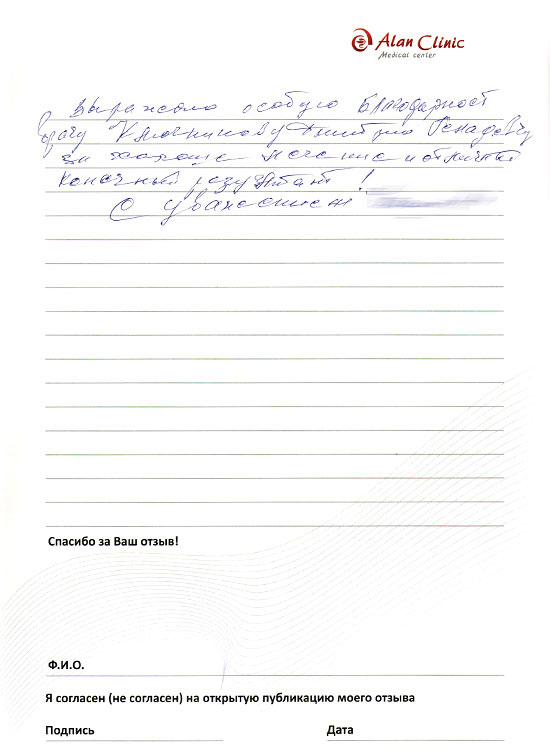 Alan Clinic
Medical center
Выражаю особую благодарность
врачу Ключникову Дмитрию Генадевичу
за хорошее лечение и отличный
конечный результат!
С уважением
Спасибо за Ваш отзыв!
Ф.И.О.
Я согласен (не согласен) на открытую публикацию моего отзыва
Подпись Дата